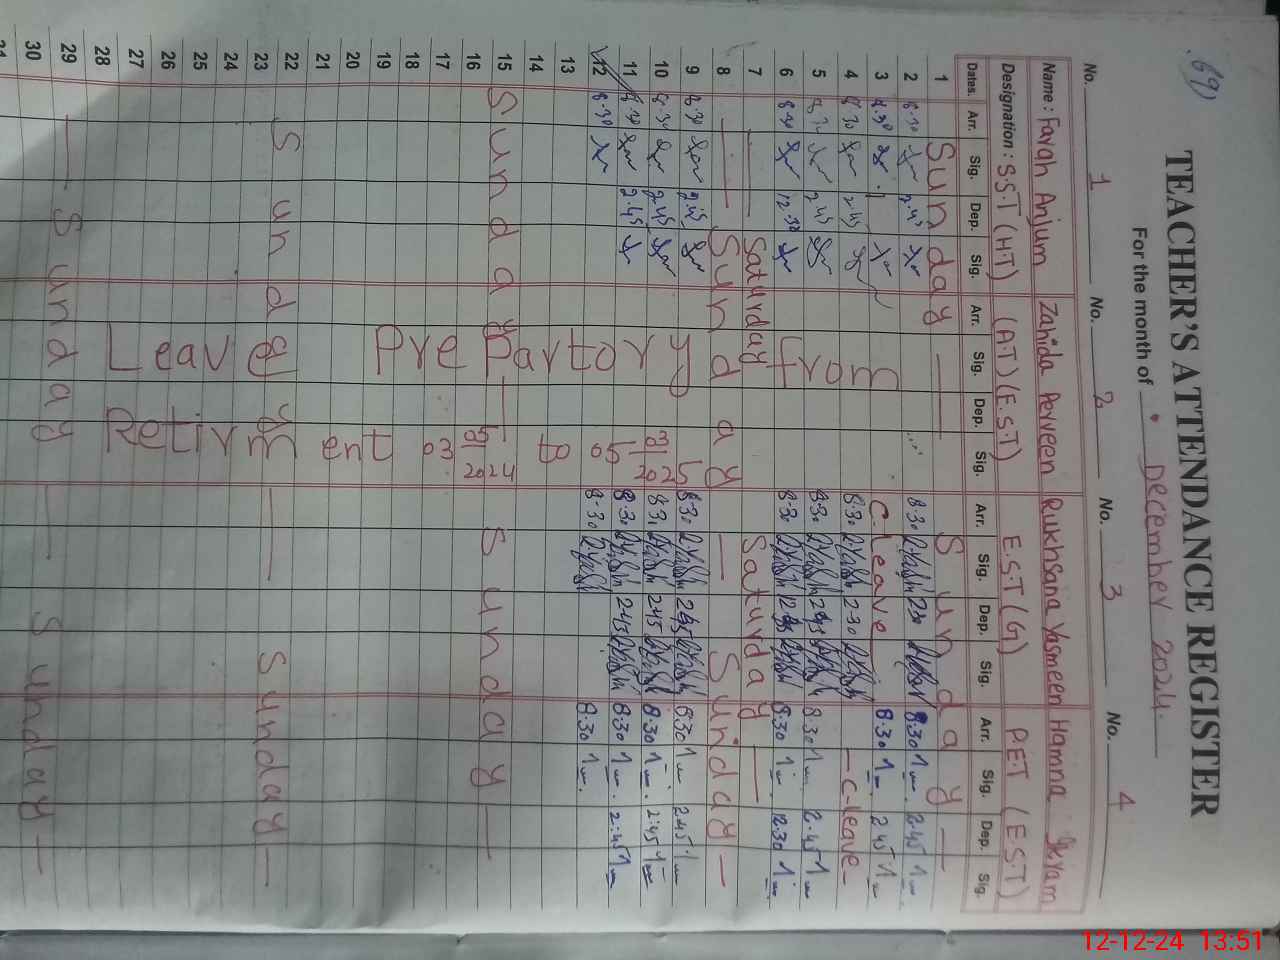 69)
TEACHER'S ATTENDANCE REGISTER
For the month of December 2024.
No. 1 No. 2 No. 3 No. 4
Name: Farah Anjum Zahida Perveen Rukhsana Yasmeen Hamna
Designation: S.S.T (H.T) (A.T) (E.S.T) E.S.T (G) PET (E.S.T)
Dates. Arr. Sig. Dep. Sig. Arr. Sig. Dep. Sig. Arr. Sig. Dep. Sig. Arr. Sig. Dep. Sig.
1 Sunday — Sunday —
2 8.30 2.45 8.30 2.30 8.30 2.45
3 8.30 C-leave 8.30 2.45
4 8.30 2.45 8.30 2.30 — C-leave —
5 8.30 2.45 8.30 2.45 8.30 2.45
6 8.30 12.30 8.30 8.30 12.30
7 — Saturday Saturday —
8 — Sunday — Sunday —
9 8.30 2.45 8.30 2.45 8.30 2.45
10 8.30 2.45 8.30 2.45 8.30 2:45
11 8.30 2.45 8.30 2.45 8.30 2:45
12 8.30 8.30 8.30
13
14
15 Sunday — Sunday —
16
17
18
19
20
21
22 Sunday — Sunday —
23
24
25
26
27
28
29 — Sunday — Sunday —
30
31
Leave Prepartory from
Retirment 03 05/2024 to 05 03/2025
12-12-24 13:51